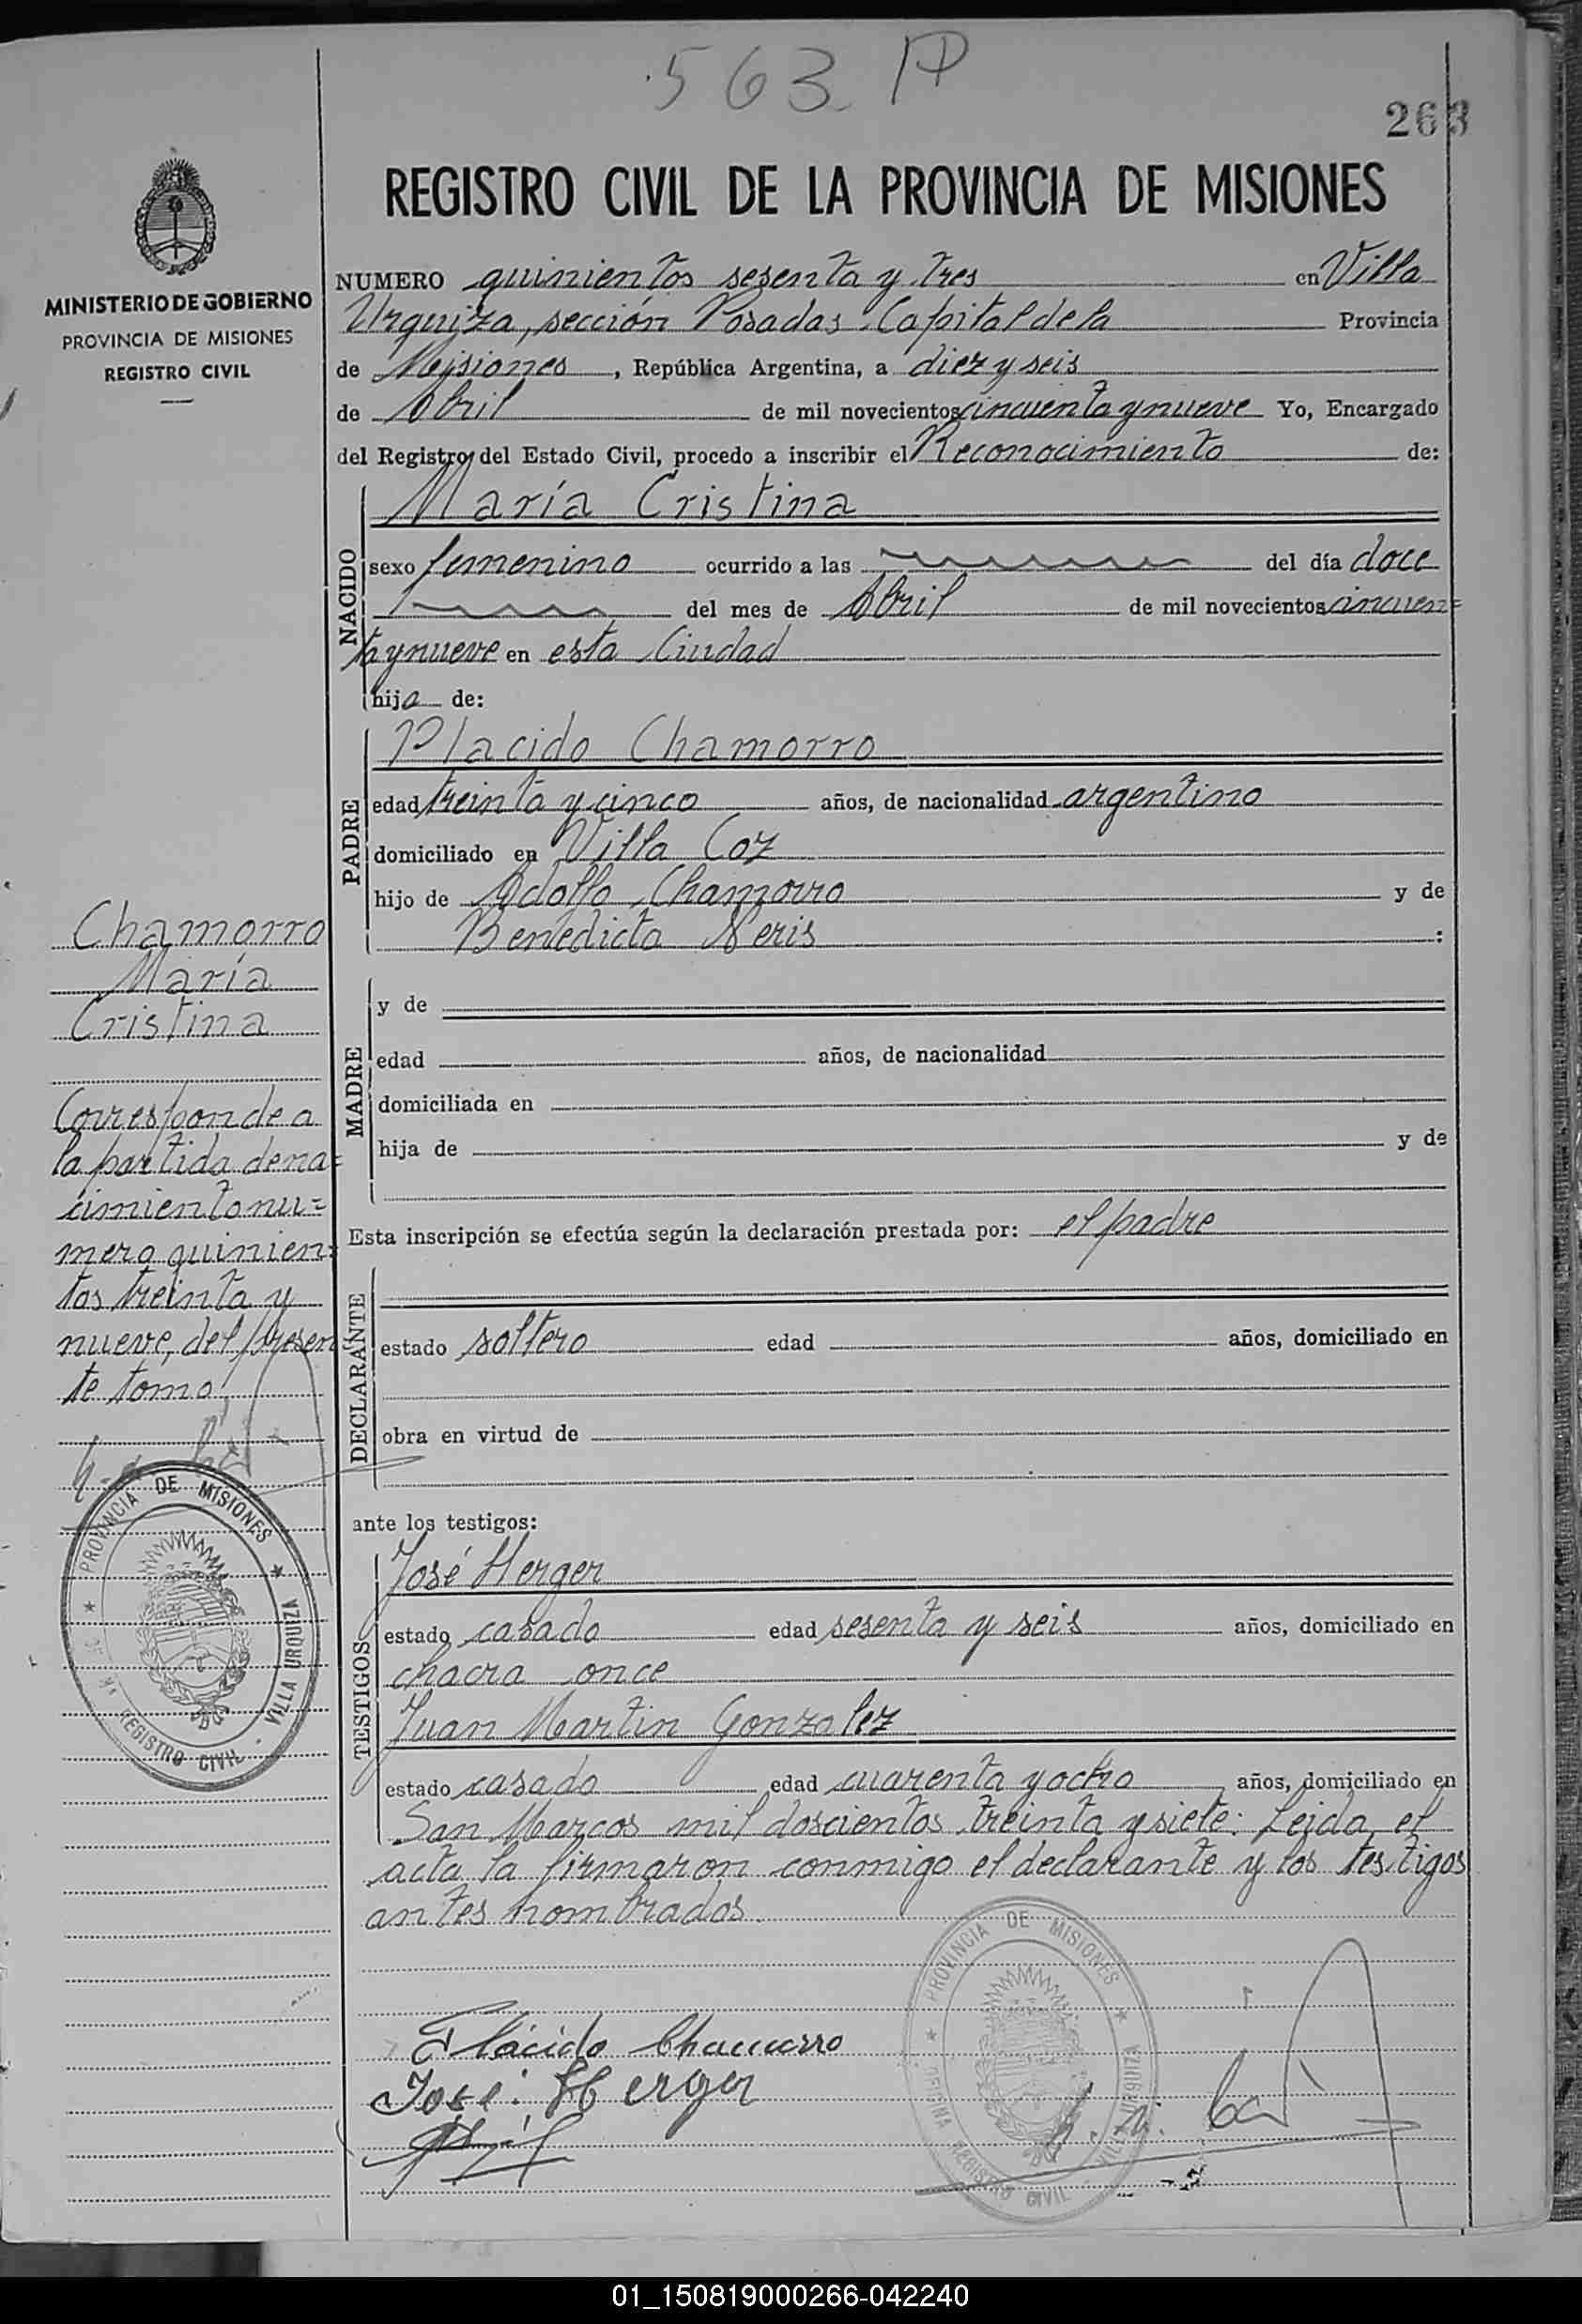 563
263
REGISTRO CIVIL DE LA PROVINCIA DE MISIONES
MINISTERIO DE GOBIERNO
PROVINCIA DE MISIONES
REGISTRO CIVIL
NUMERO quinientos sesenta y tres en Villa
Urquiza, sección Posadas Capital de la Provincia
de Misiones, República Argentina, a diez y seis
de Abril de mil novecientos cincuenta y nueve Yo, Encargado
del Registro del Estado Civil, procedo a inscribir el Reconocimiento de:
NACIDO
María Cristina
sexo femenino ocurrido a las del día doce
del mes de Abril de mil novecientos cincuen=
ta y nueve en esta Ciudad
hija de:
PADRE
Placido Chamorro
edad treinta y cinco años, de nacionalidad argentino
domiciliado en Villa Coz
hijo de Adolfo Chamorro y de
Benedicta Neris :
MADRE
y de
edad años, de nacionalidad
domiciliada en
hija de y de
Esta inscripción se efectúa según la declaración prestada por: el padre
DECLARANTE
estado soltero edad años, domiciliado en
obra en virtud de
ante los testigos:
TESTIGOS
José Herger
estado casado edad sesenta y seis años, domiciliado en
chacra once
Juan Martin Gonzalez
estado casado edad cuarenta y ocho años, domiciliado en
San Marcos mil doscientos treinta y siete: Leida el
acta la firmaron conmigo el declarante y los testigos
antes nombrados.
Plácido Chamorro
José Herger
Chamorro
María
Cristina
Corresponde a
la partida de na=
cimiento nu=
mero quinien=
tos treinta y
nueve, del presen
te tomo
PROVINCIA DE MISIONES
VILLA URQUIZA
REGISTRO CIVIL
PROVINCIA DE MISIONES
VILLA URQUIZA
OFICINA REGISTRO CIVIL
01_150819000266-042240